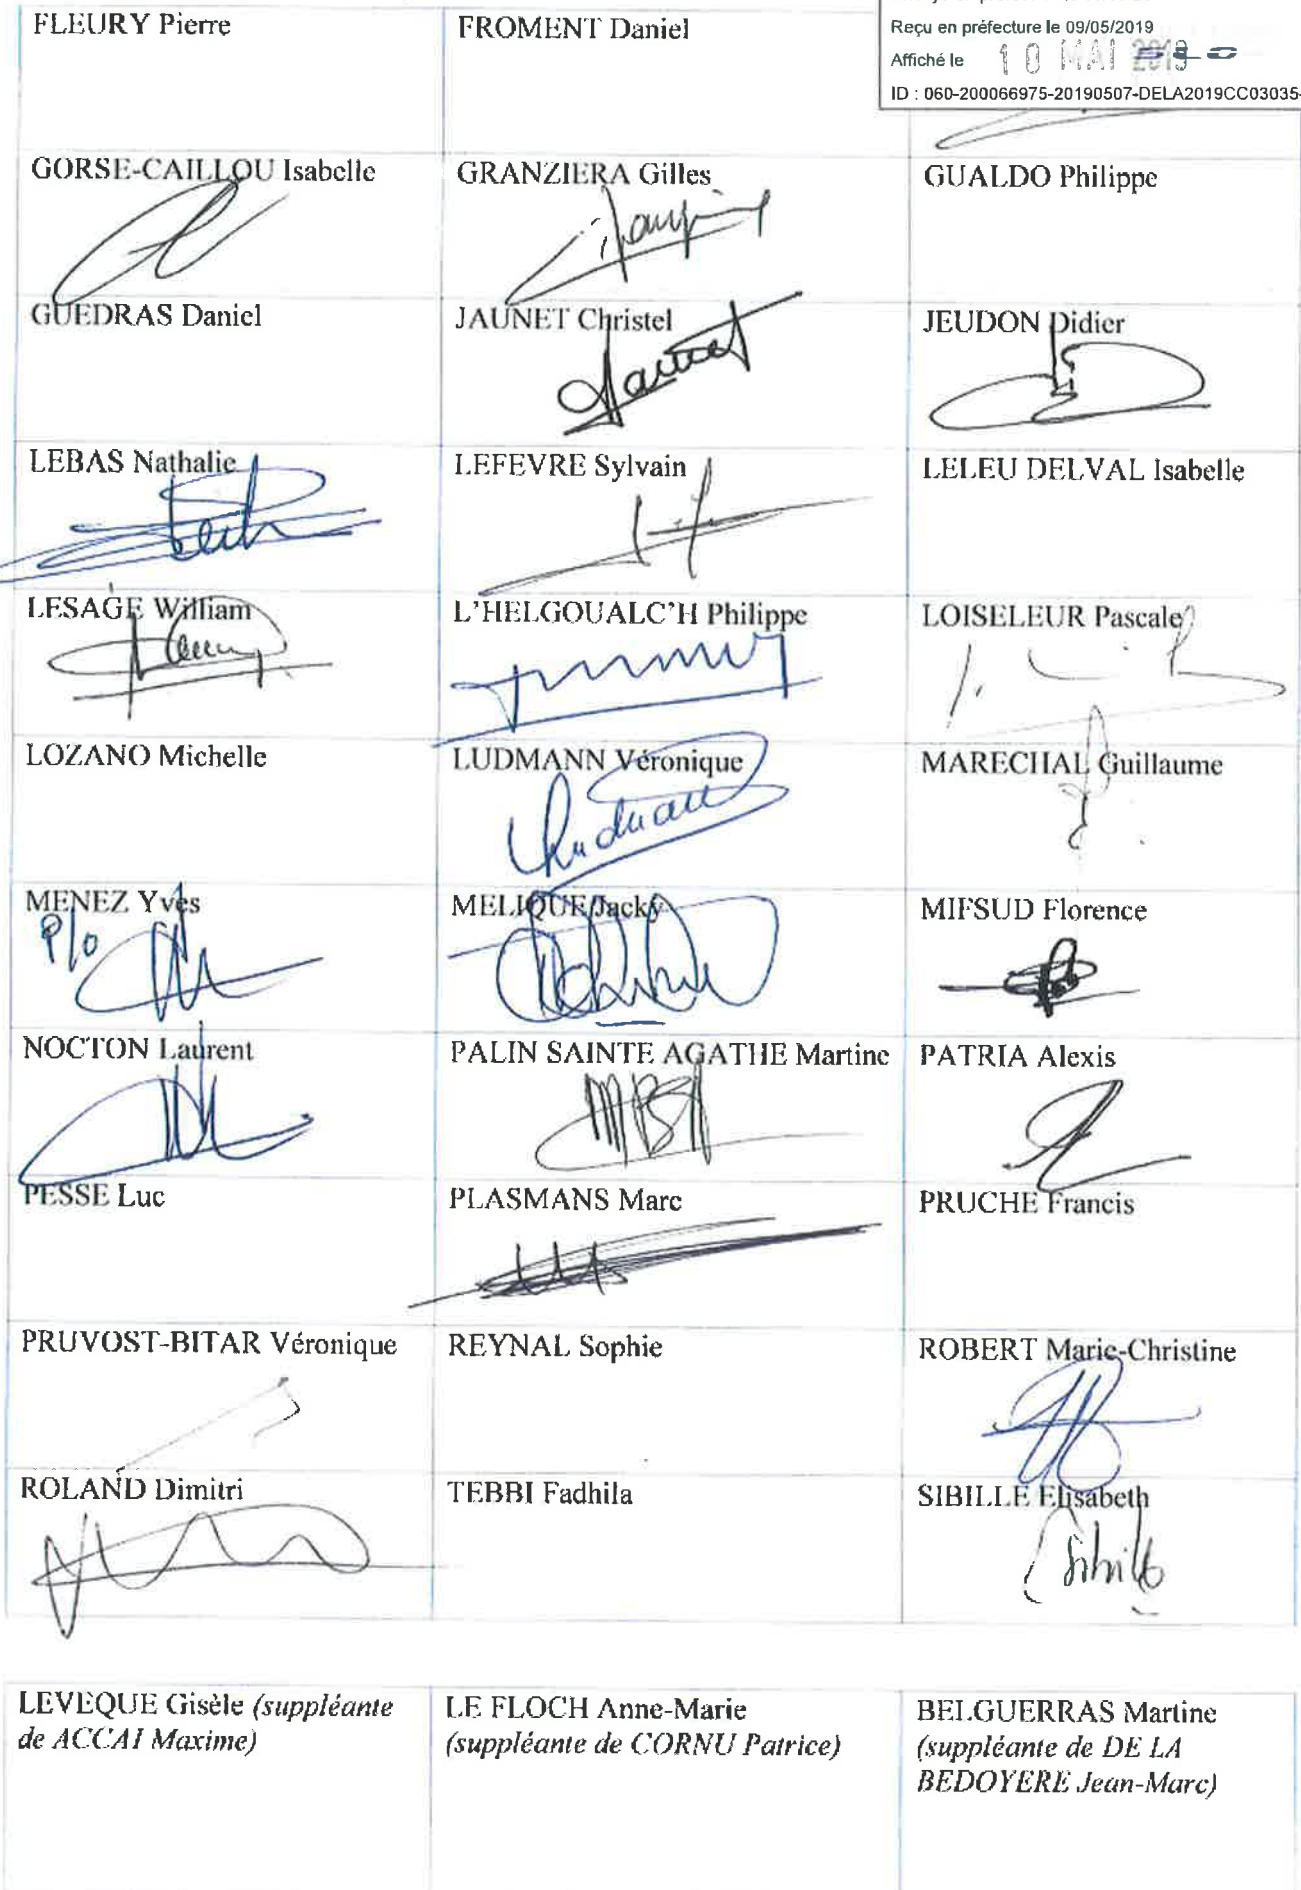 Reçu en préfecture le 09/05/2019
Affiché le 10 MAI 2019
ID : 060-200066975-20190507-DELA2019CC03035-
FLEURY Pierre
FROMENT Daniel
GORSE-CAILLOU Isabelle
GRANZIERA Gilles
GUALDO Philippe
GUEDRAS Daniel
JAUNET Christel
Jaunet
JEUDON Didier
LEBAS Nathalie
LEFEVRE Sylvain
LELEU DELVAL Isabelle
LESAGE William
L'HELGOUALC'H Philippe
LOISELEUR Pascale
LOZANO Michelle
LUDMANN Véronique
MARECHAL Guillaume
MENEZ Yves
P/o
MELIQUE Jacky
MIFSUD Florence
NOCTON Laurent
PALIN SAINTE AGATHE Martine
PATRIA Alexis
PESSE Luc
PLASMANS Marc
PRUCHE Francis
PRUVOST-BITAR Véronique
REYNAL Sophie
ROBERT Marie-Christine
ROLAND Dimitri
TEBBI Fadhila
SIBILLE Elisabeth
Sibille
LEVEQUE Gisèle (suppléante
de ACCAI Maxime)
LE FLOCH Anne-Marie
(suppléante de CORNU Patrice)
BELGUERRAS Martine
(suppléante de DE LA
BEDOYERE Jean-Marc)